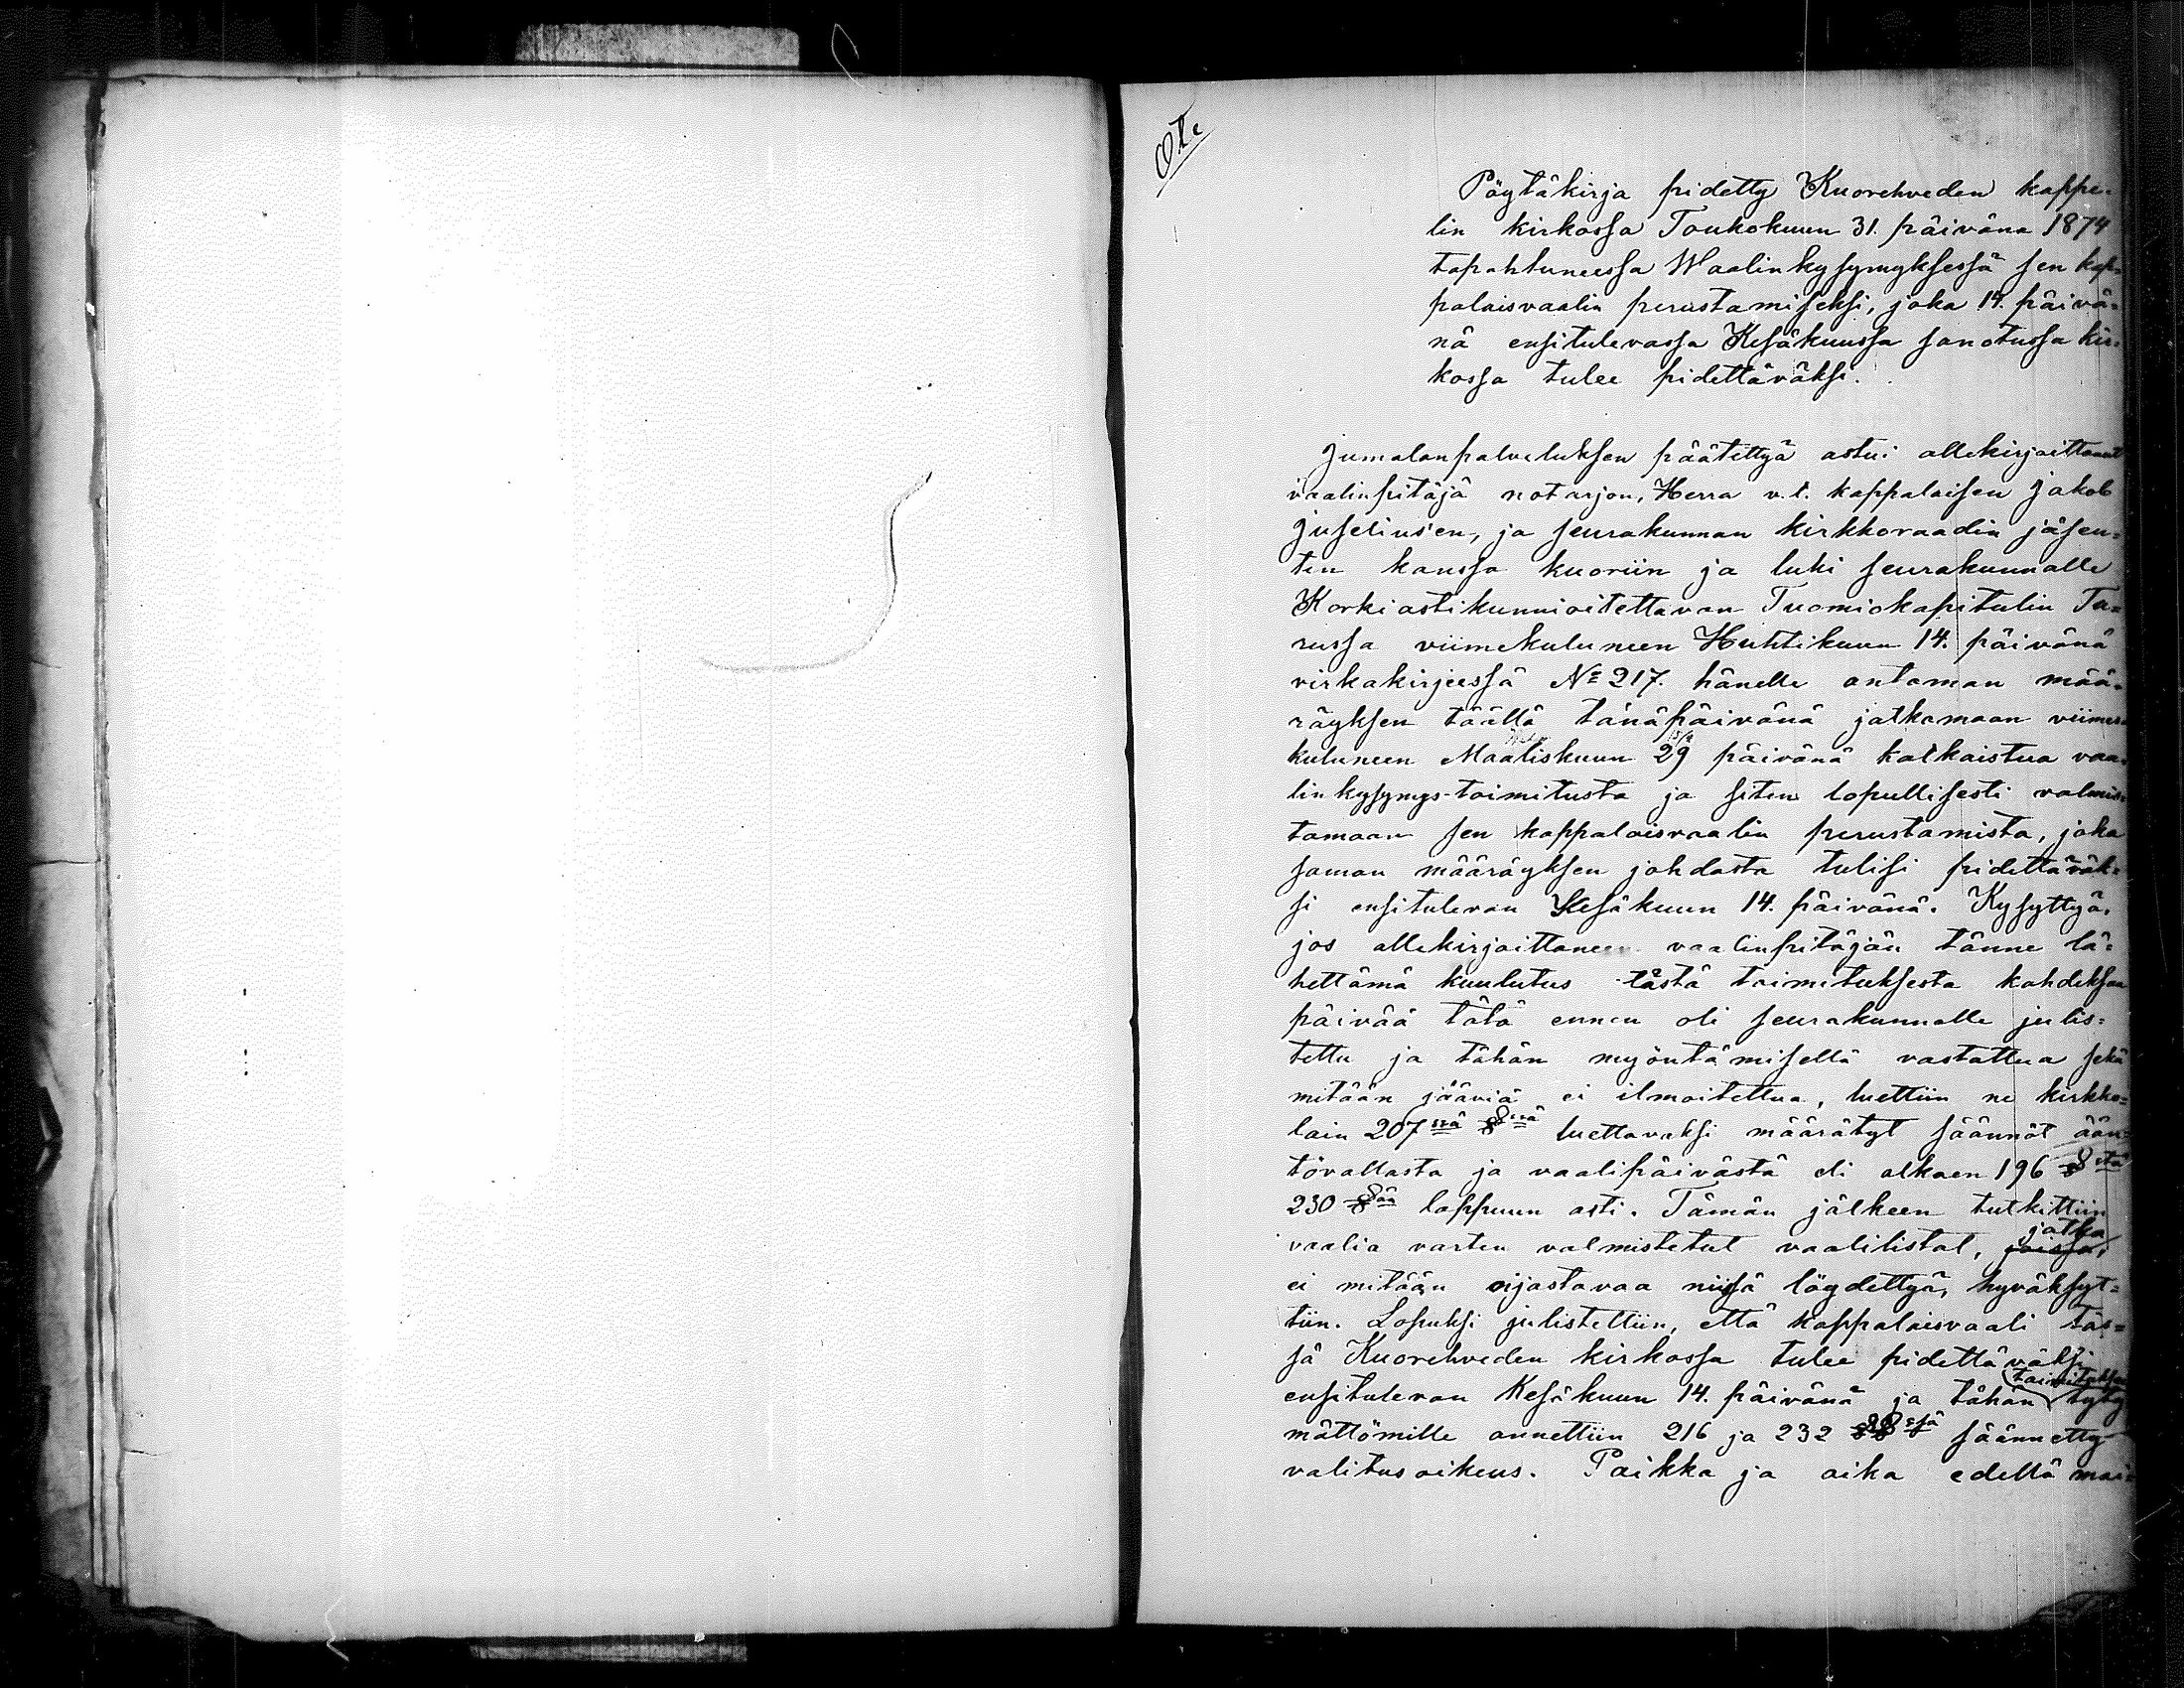 Ote
Pöytäkirja pidetty Kuorehveden kappe-
lin kirkossa Toukokuun 31. päivänä 1874
tapahtuneessa Waalinkysymyksessä sen kap-
palaisvaalin perustamiseksi, joka 14. päivä-
nä ensitulevassa Kesäkuussa sanotussa kir-
kossa tulee pidettäväksi.
Jumalanpalveluksen päätettyä astui allekirjoittanut
vaalinpitäjä notarjon, Herra v.t. kappalaisen Jakob
Juselius'en, ja seurakunnan kirkkoraadin jäsen-
ten kanssa kuoriin ja luki seurakunnalle
Korkiastikunnioitettavan Tuomiokapitulin Tu-
russa viimekuluneen Huhtikuun 14. päivänä
virkakirjeessä No 217. hänelle antaman mää-
räyksen täällä tänäpäivänä jatkamaan viimeis
kuluneen Maaliskuun 29 päivänä katkaistua vaa-
linkysymys-toimitusta ja siten lopullisesti valmis-
tamaan sen kappalaisvaalin perustamista, joka
saman määräyksen johdosta tulisi pidettäväk-
si ensitulevan Kesäkuun 14. päivänä. Kysyttyä,
jos allekirjoittaneen vaalinpitäjän tänne lä-
hettämä kuulutus tästä toimituksesta kahdeksan
päivää tätä ennen oli seurakunnalle julis-
tettu ja tähän myöntämisellä vastattua sekä
mitään jääviä ei ilmoitettua, luettiin ne kirkko-
lain 207 ssä § ssä luettavaksi määrätyt säännöt ään-
tövallasta ja vaalipäivästä eli alkaen 196 § stä
230 § ää loppuun asti. Tämän jälkeen tutkittiin
vaalia varten valmistetut vaalilistat, joissa, jotka
ei mitään ojastavaa niissä löydettyä, hyväksyt-
tiin. Lopuksi julistettiin, että kappalaisvaali täs-
sä Kuorehveden kirkossa tulee pidettäväksi
ensitulevan Kesäkuun 14. päivänä ja tähän toimitukseen tyty
mättömille annettiin 216 ja 232 §§ ssä säännetty
valitusoikeus. Paikka ja aika edellä mai-